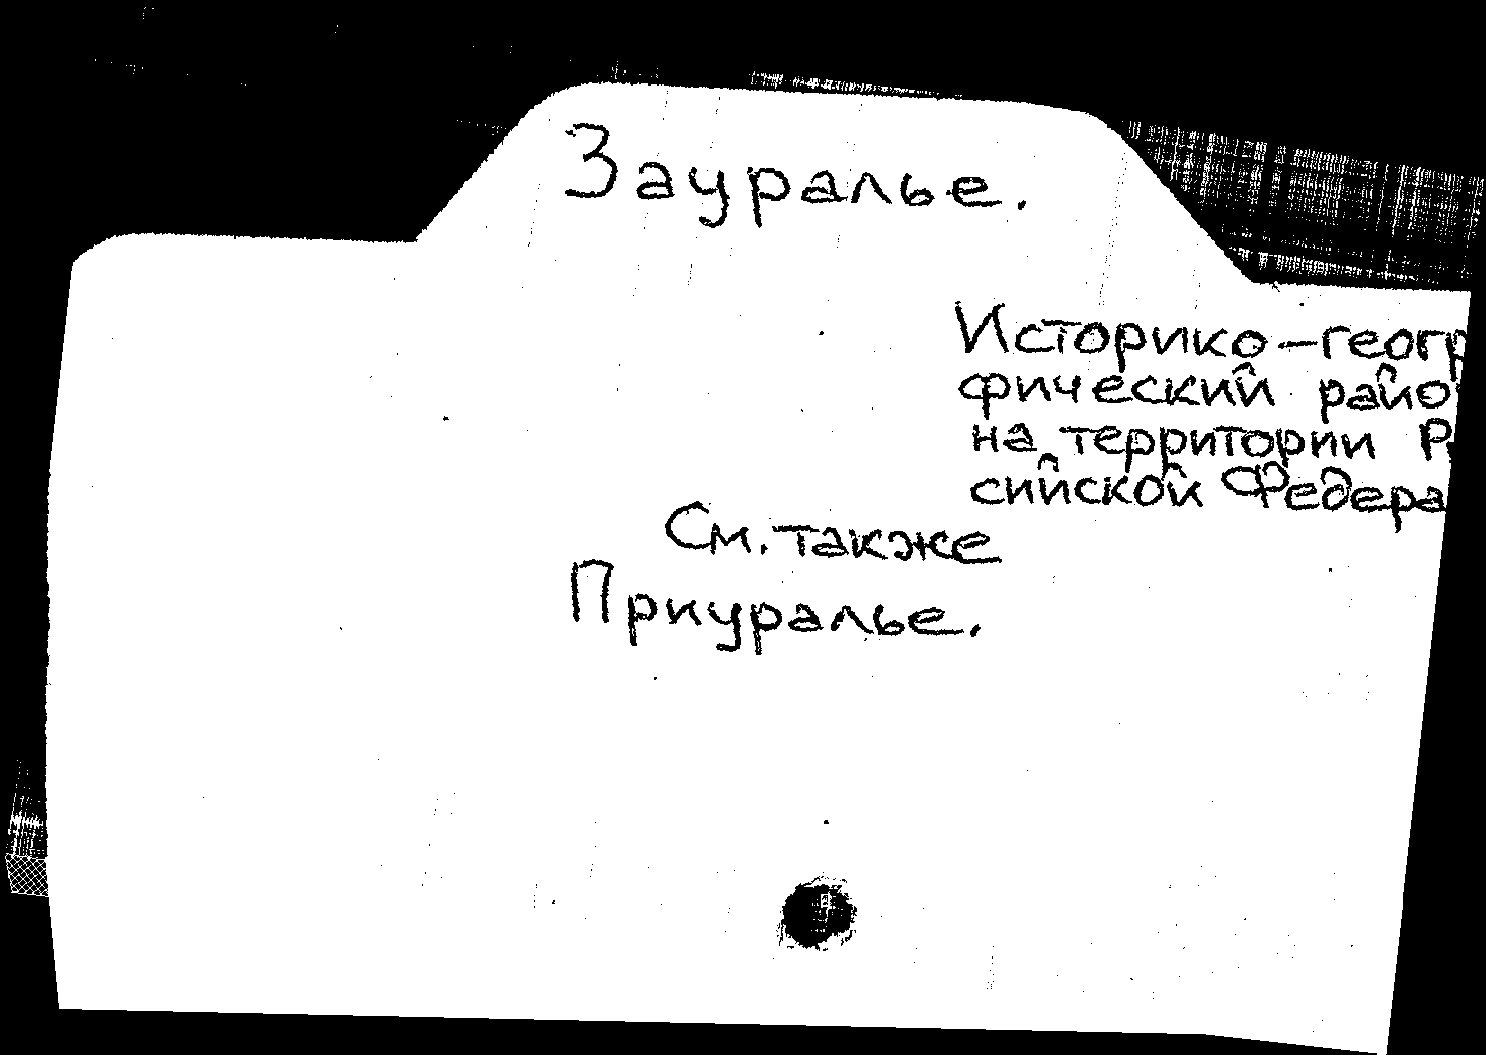 Зауралье.
Историко-геогр
фический райо
на территории Р
сийской Федера
См. также
Приуралье.